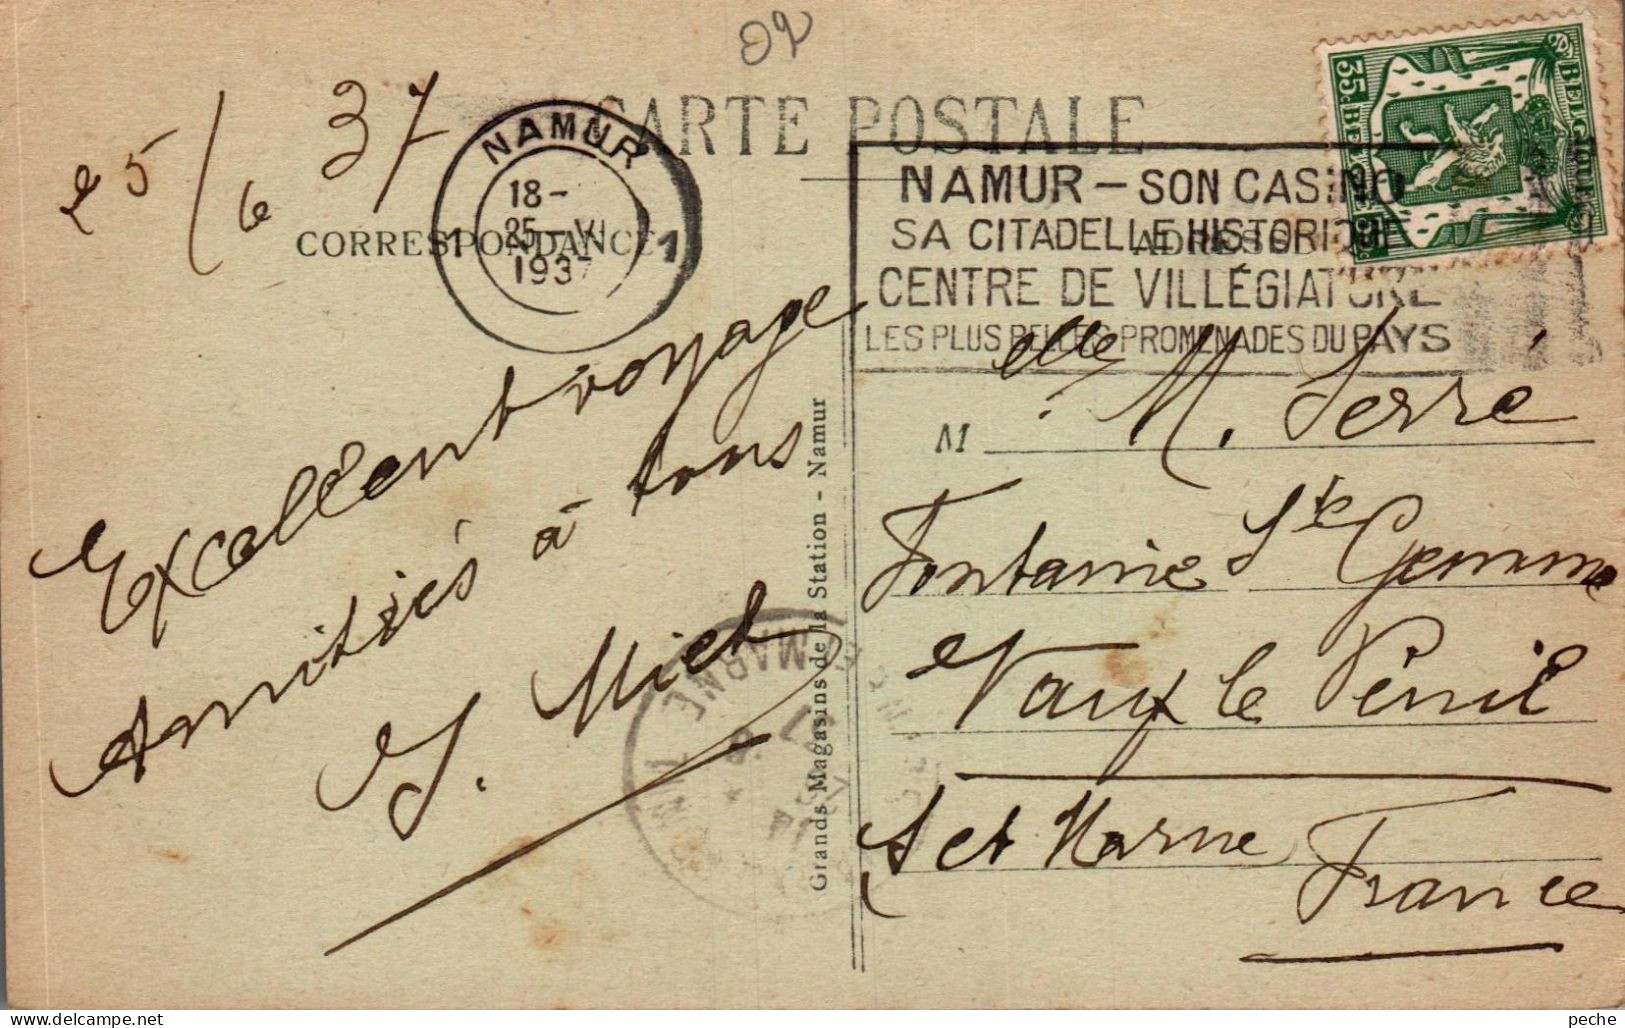 02
CARTE POSTALE
25/6 37
NAMUR
18-
25-VI
1937
1 1
NAMUR – SON CASINO
SA CITADELLE HISTORIQUE
CENTRE DE VILLÉGIATURE
LES PLUS BELLES PROMENADES DU PAYS
BELGIQUE
35c BELGIE 35c
CORRESPONDANCE
ADRESSE
Excellent voyage
Amitiés à tous
Grands Magasins de la Station - Namur
M elle M. Serre
Fontaine Ste Gemme
Vaux le Pénil
S et Marne
France
MARNE
peche